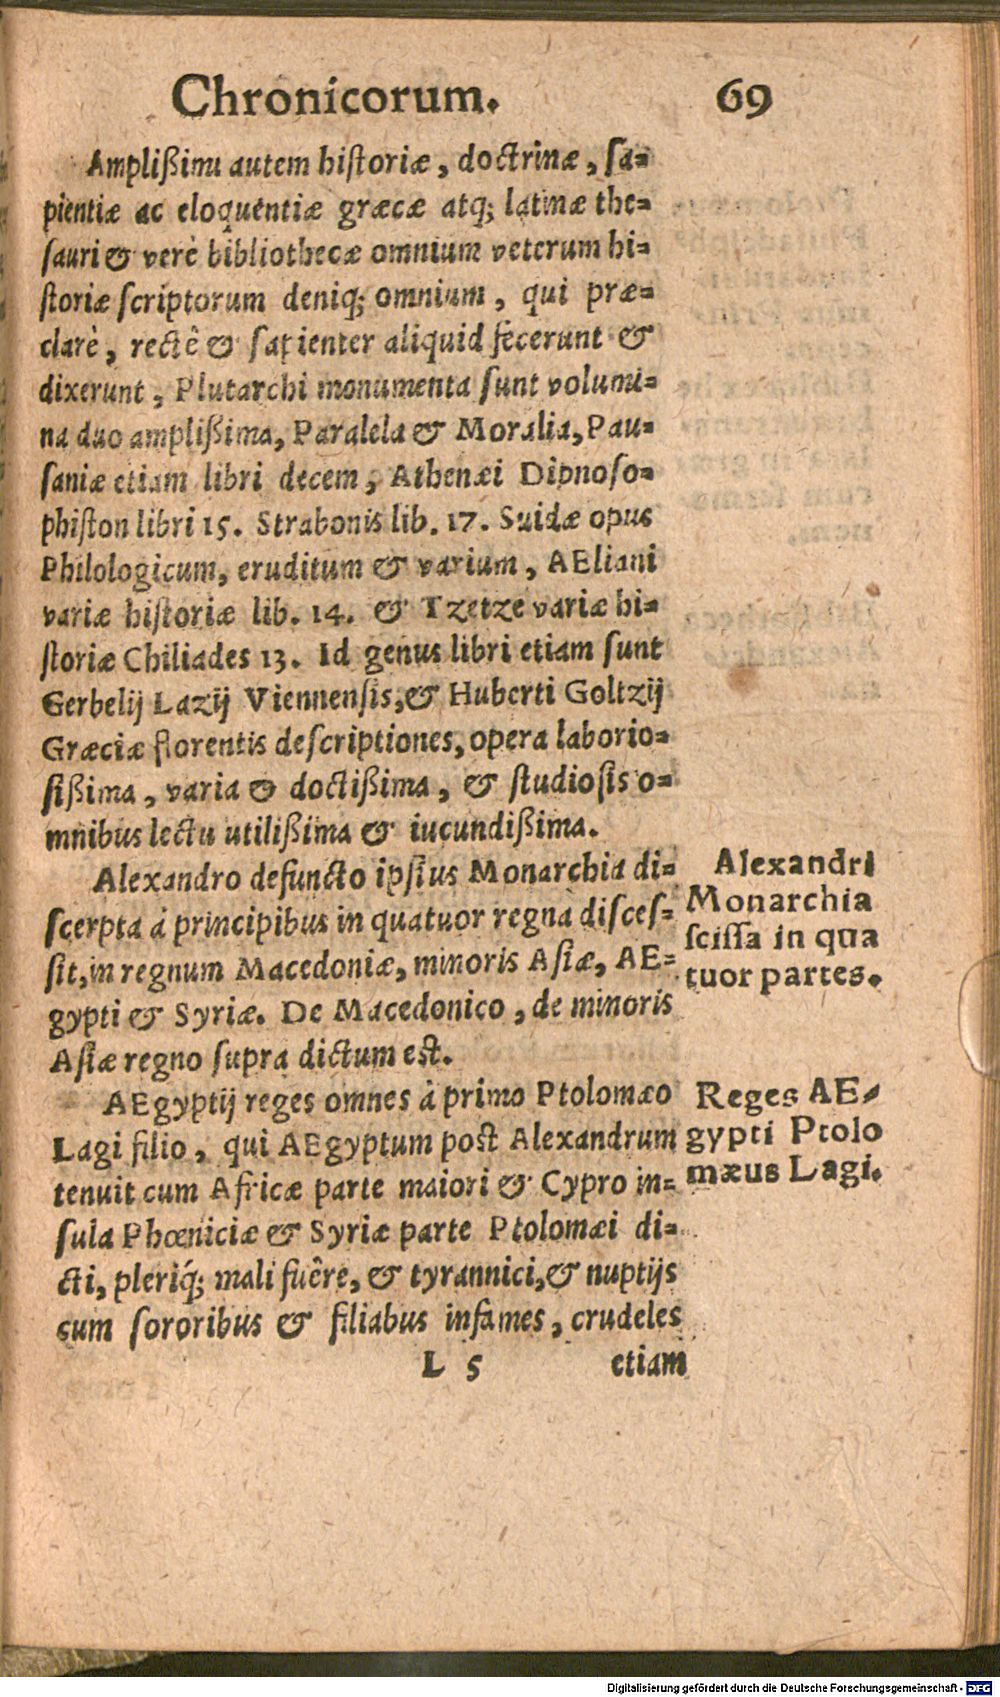 Chronicorum. 69
Amplißimi autem historiæ, doctrinæ, sa=
pientiæ ac eloquentiæ græcæ atq; latinæ the=
sauri & verè bibliothecæ omnium veterum hi=
storiæ scriptorum deniq; omnium, qui præ=
clarè, rectè & sapienter aliquid fecerunt &
dixerunt, Plutarchi monumenta sunt volumi=
na duo amplißima, Paralela & Moralia, Pau=
saniæ etiam libri decem, Athenæi Dipnoso=
phiston libri 15. Strabonis lib. 17. Suidæ opus
Philologicum, eruditum & varium, AEliani
variæ historiæ lib. 14. & Tzetze variæ hi=
storiæ Chiliades 13. Id genus libri etiam sunt
Gerbelij Lazij Viennensis, & Huberti Goltzij
Græciæ florentis descriptiones, opera laborio=
sißima, varia & doctißima, & studiosis o=
mnibus lectu utilißima & iucundißima.
Alexandro defuncto ipsius Monarchia di=
scerpta à principibus in quatuor regna disces=
sit, in regnum Macedoniæ, minoris Asiæ, AE=
gypti & Syriæ. De Macedonico, de minoris
Asiæ regno supra dictum est.
Alexandri
Monarchia
scissa in qua
tuor partes.
AEgyptij reges omnes à primo Ptolomæo
Lagi filio, qui AEgyptum post Alexandrum
tenuit cum Africæ parte maiori & Cypro in=
sula Phœniciæ & Syriæ parte Ptolomæi di=
cti, pleriq́; mali fuêre, & tyrannici, & nuptijs
cum sororibus & filiabus infames, crudeles
Reges AE=
gypti Ptolo
mæus Lagi.
L 5 etiam
Digitalisierung gefördert durch die Deutsche Forschungsgemeinschaft - DFG